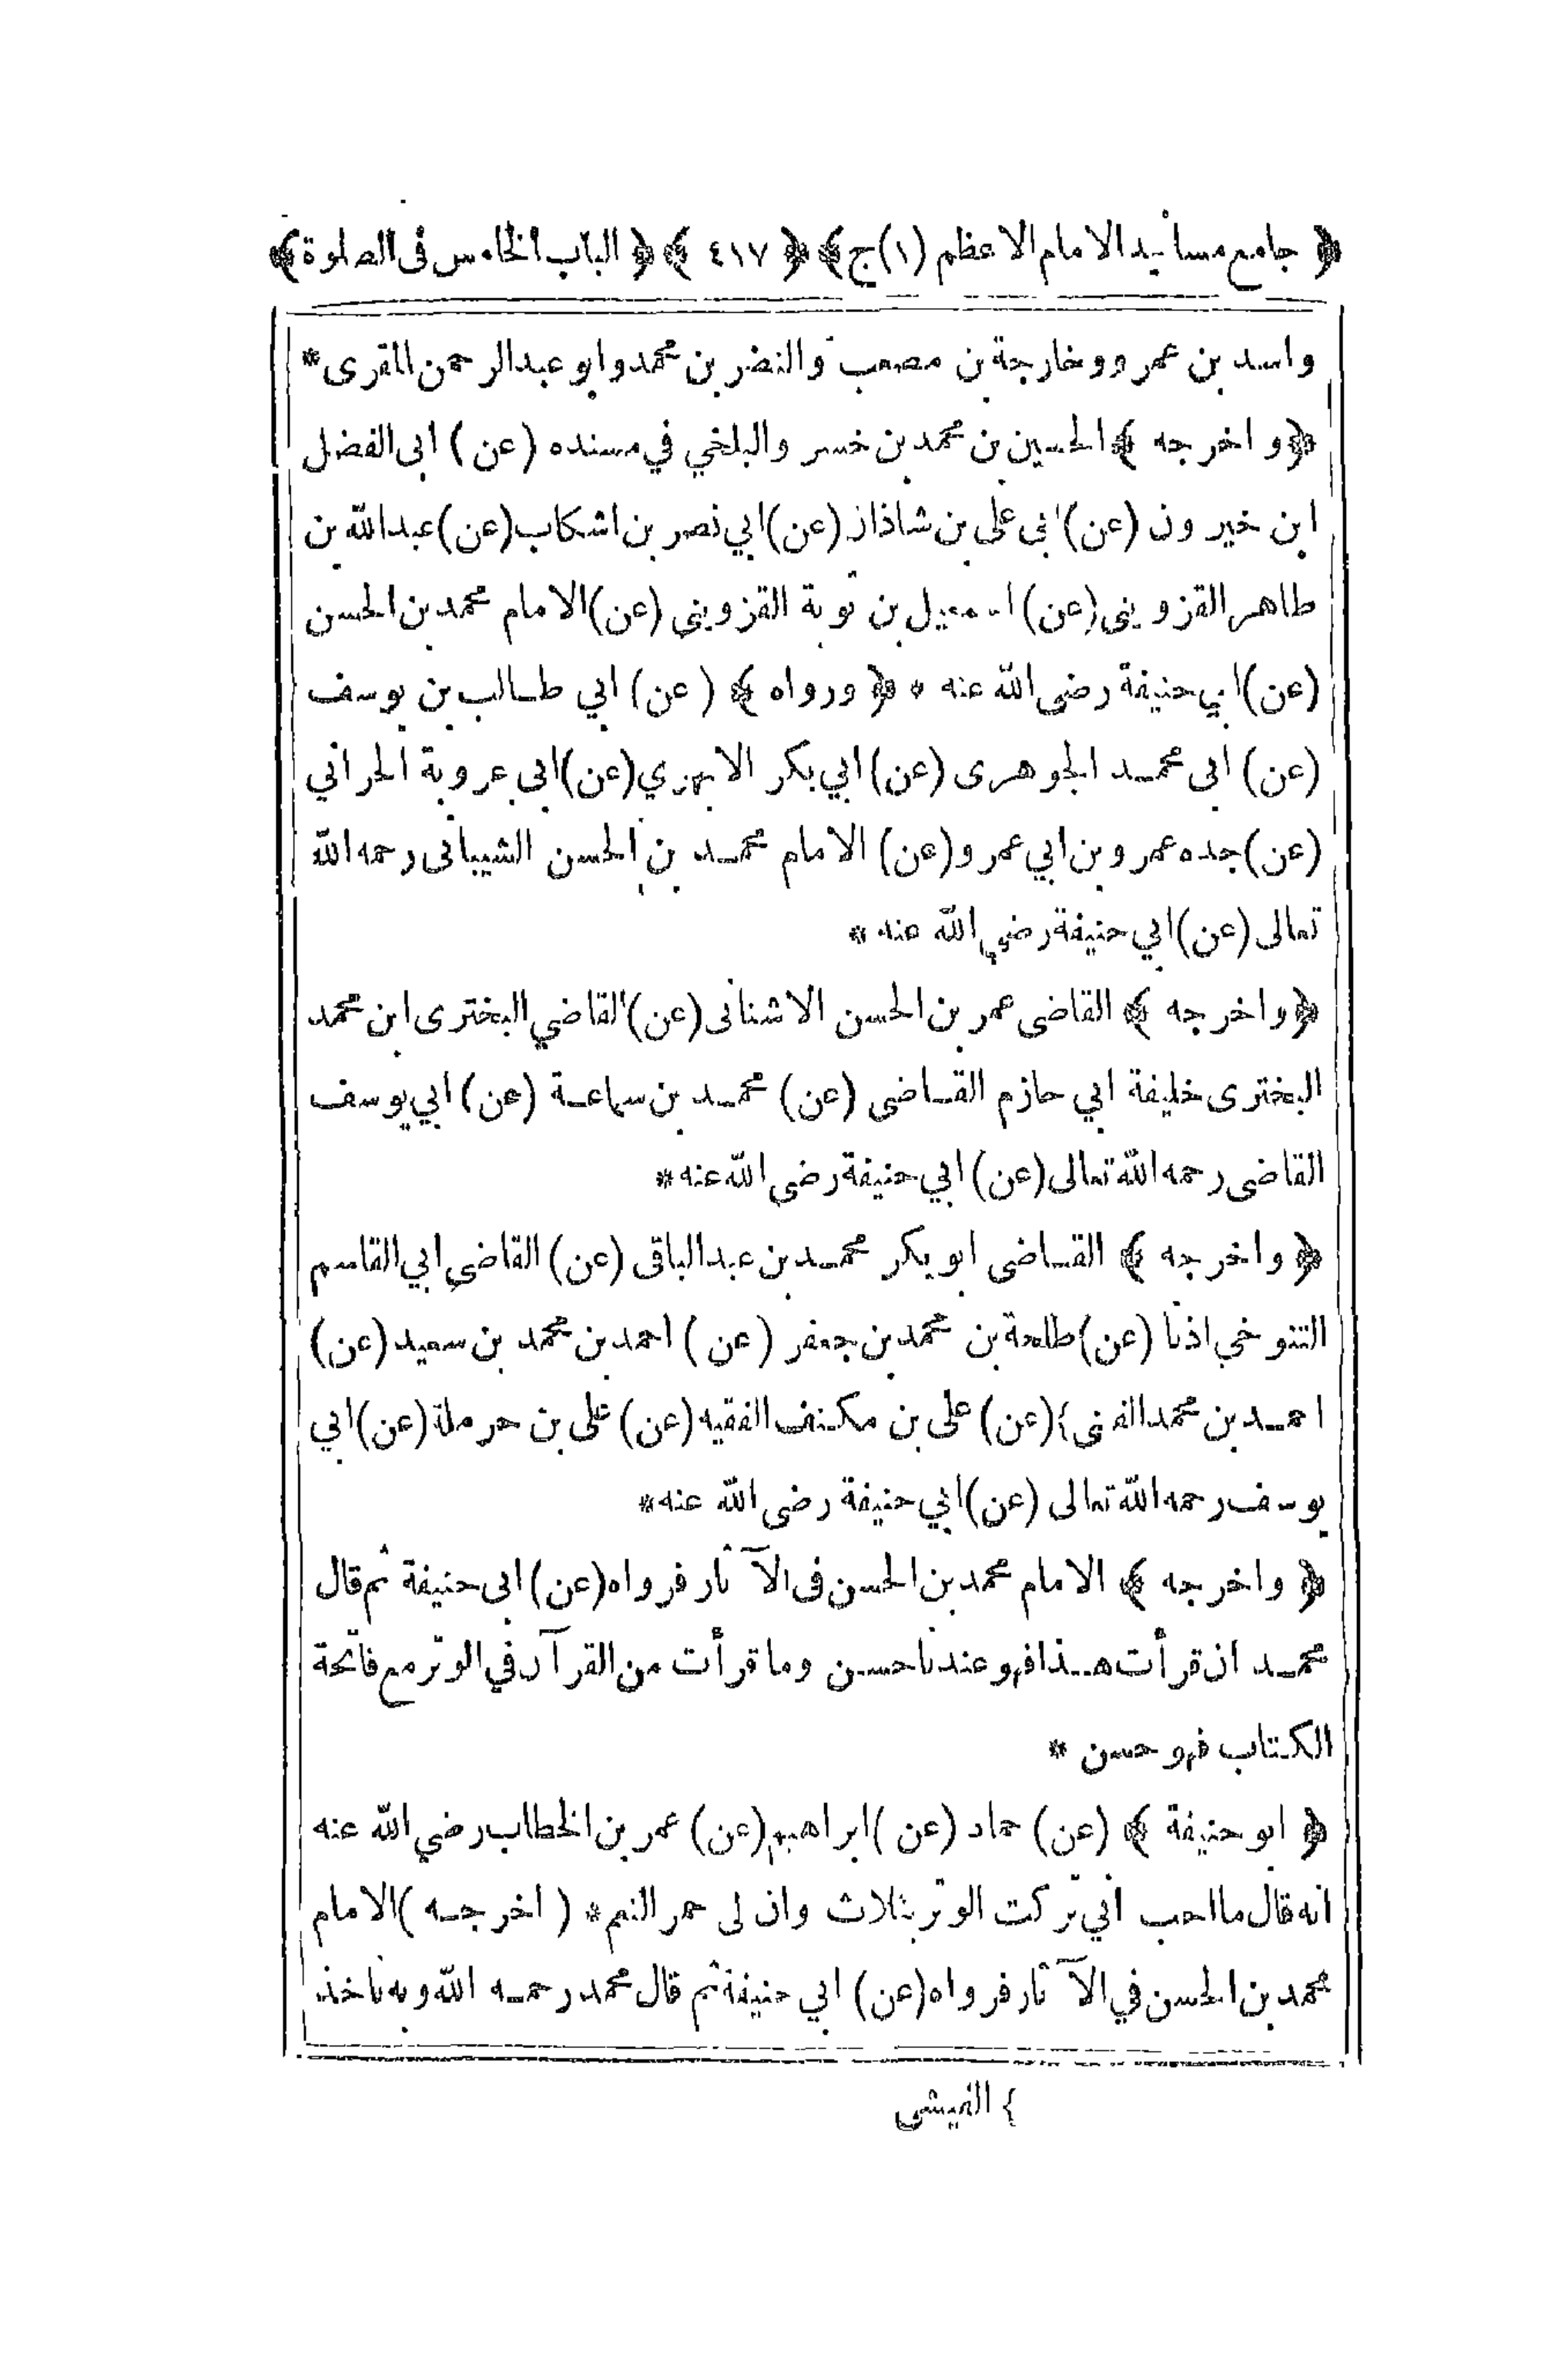 ﴿ جامع مسانيد الامام الاعظم (١) ج ﴾ ﴿ ٤١٧ ﴾ ﴿ الباب الخامس فى الصلوة ﴾
واسد بن عمرو وخارجة بن مصعب والنضر بن محمد وابو عبد الرحمن المقرى *
﴿ واخرجه ﴾ الحسين بن محمد بن خسرو البلخي في مسنده (عن) ابى الفضل
ابن خيرون (عن) ابى على بن شاذان (عن) ابي نصر بن اشكاب (عن) عبد الله بن
طاهر القزوينى (عن) اسمعيل بن توبة القزوينى (عن) الامام محمد بن الحسن
(عن) ابي حنيفة رضى الله عنه * ﴿ ورواه ﴾ (عن) ابي طالب بن يوسف
(عن) ابى محمد الجوهرى (عن) ابي بكر الابهري (عن) ابى عروبة الحراني
(عن) جده عمرو بن ابي عمرو (عن) الامام محمد بن الحسن الشيبانى رحمه الله
تعالى (عن) ابي حنيفة رضي الله عنه *
﴿ واخرجه ﴾ القاضى عمر بن الحسن الاشنانى (عن) القاضي البخترى ابن محمد
البخترى خليفة ابي حازم القاضى (عن) محمد بن سماعة (عن) ابي يوسف
القاضى رحمه الله تعالى (عن) ابي حنيفة رضى الله عنه *
﴿ واخرجه ﴾ القاضى ابو بكر محمد بن عبد الباقى (عن) القاضى ابي القاسم
التنوخي اذنا (عن) طلحة بن محمد بن جعفر (عن) احمد بن محمد بن سعيد (عن)
احمد بن محمد } (عن) على بن مكنف الفقيه (عن) على بن حرملة (عن) ابي
يوسف رحمه الله تعالى (عن) ابي حنيفة رضى الله عنه *
﴿ واخرجه ﴾ الامام محمد بن الحسن فى الآثار فرواه (عن) ابى حنيفة ثم قال
محمد ان قرأت هذا فهو عندنا حسن وما قرأت من القرآن في الوتر مع فاتحة
الكتاب فهو حسن *
﴿ ابو حنيفة ﴾ (عن) حماد (عن) ابراهيم (عن) عمر بن الخطاب رضي الله عنه
انه قال ما احب اني تركت الوتر بثلاث وان لى حمر النعم * (اخرجه) الامام
محمد بن الحسن في الآثار فرواه (عن) ابي حنيفة ثم قال محمد رحمه الله وبه ناخذ